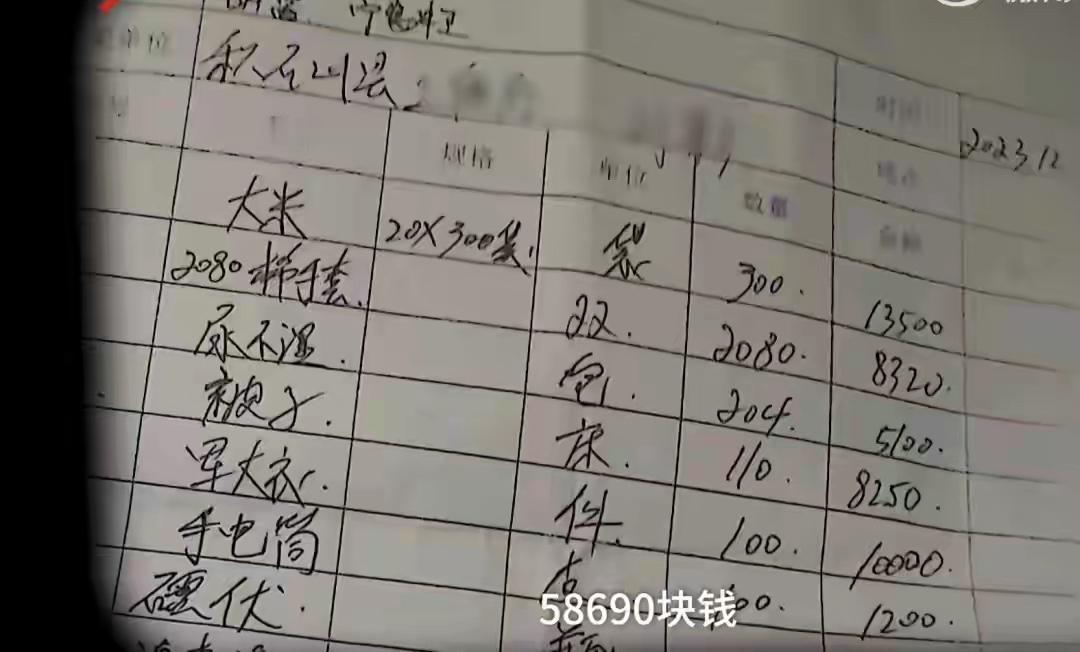 积石山县
时间 2023.12
规格 单位 数量 金额
大米 20X300袋. 袋 300. 13500
2080棉手套. 双. 2080. 8320.
尿不湿. 包. 204. 5100.
被子. 床. 110. 8250.
军大衣. 件. 100. 10000.
手电筒 1200.
58690块钱